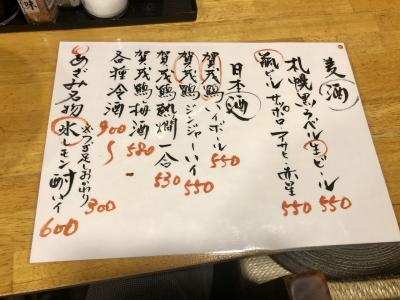 美酒
札幌黒ラベル生ビール 550
瓶ビール サッポロ アサヒ・赤星 550
日本酒
賀茂鶴ハイボール 550
賀茂鶴ジンジャーハイ 550
賀茂鶴熱燗一合 530
賀茂鶴・梅酒 580
各種冷酒 900〜
あざみ名物 氷レモン酎ハイ 600
つぎ足しおかわり 300
味